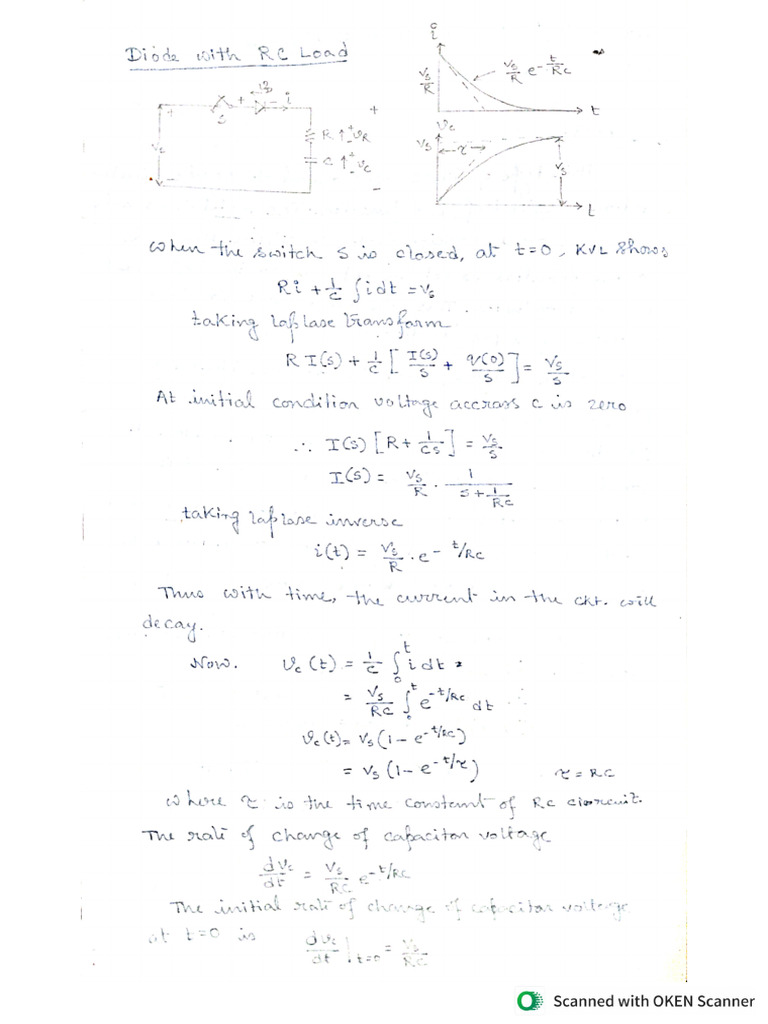 Diode with RC Load
i
Vs/R
Vs/R e^-t/RC
t
+ S + - i +
R + vR -
C + vc -
- -
vc
Vs
τ
Vs
t
When the switch S is closed, at t=0, KVL shows
Ri + 1/C ∫ i dt = Vs
taking laplase transform
R I(s) + 1/C [ I(s)/s + q(0)/s ] = Vs/s
At initial condition voltage accrass c is zero
∴ I(s) [ R + 1/Cs ] = Vs/s
I(s) = Vs/R . 1/(s + 1/RC)
taking laplase inverse
i(t) = Vs/R . e - t/RC
Thus with time, the current in the ckt. will
decay.
Now. vc(t) = 1/C ∫₀ᵗ i dt
= Vs/RC ∫₀ᵗ e^-t/RC dt
vc(t) = Vs (1 - e^-t/RC)
= Vs (1 - e^-t/τ) τ = RC
where τ is the time constant of RC circuit.
The rate of change of capacitor voltage
dvc/dt = Vs/RC e^-t/RC
The initial rate of change of capacitor voltage
at t=0 is dvc/dt |t=0 = Vs/RC
Scanned with OKEN Scanner